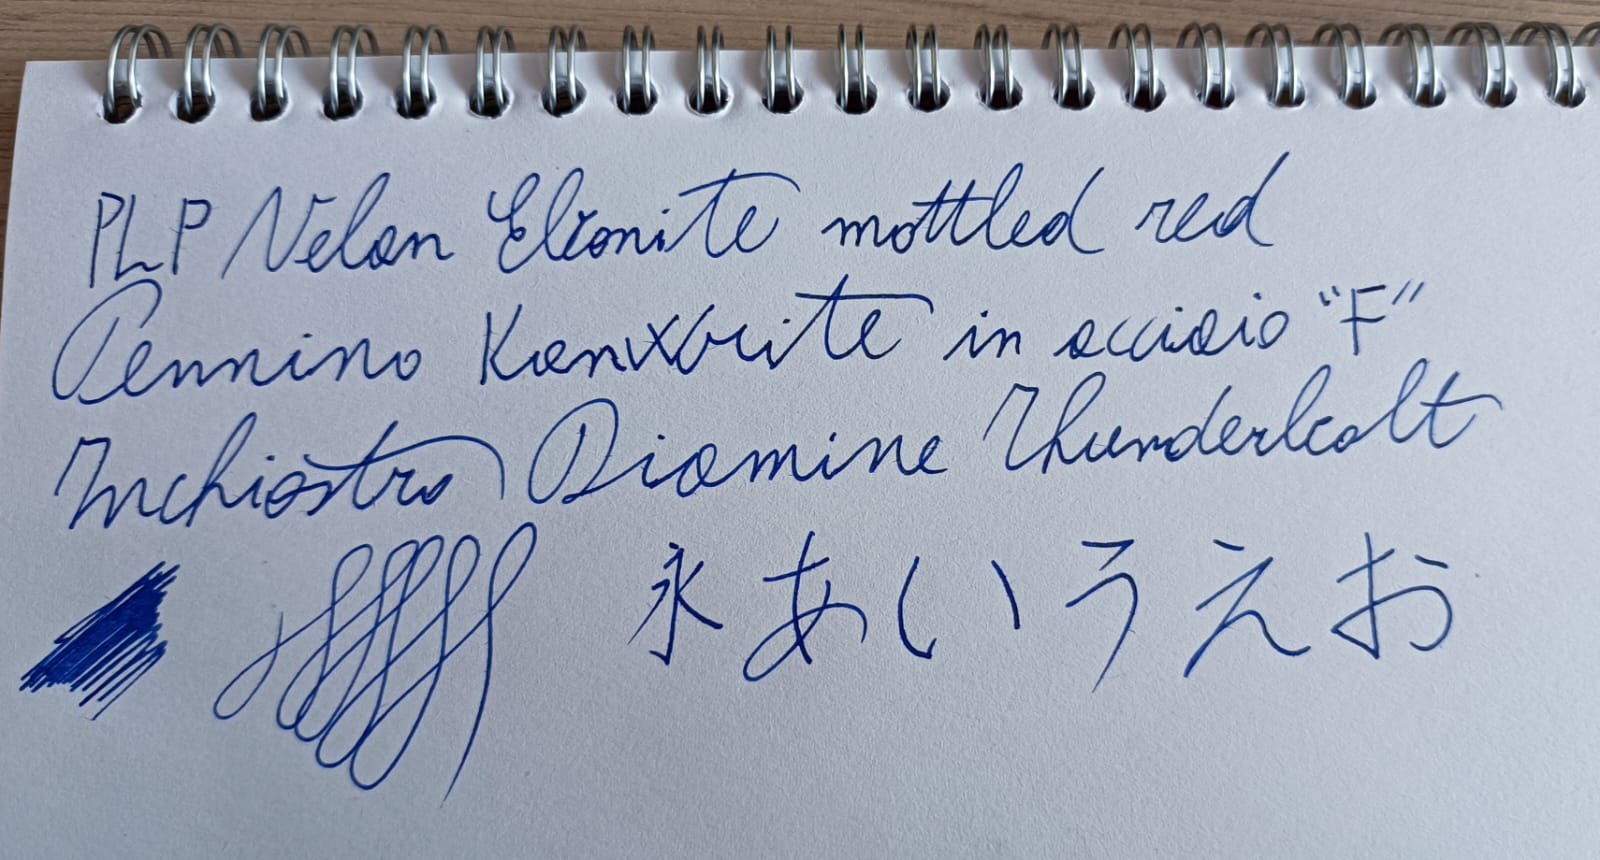 PLP Velan Ebonite mottled red
Pennino Kanwrite in acciaio "F"
Inchiostro Diamine Thunderbolt
永あいうえお